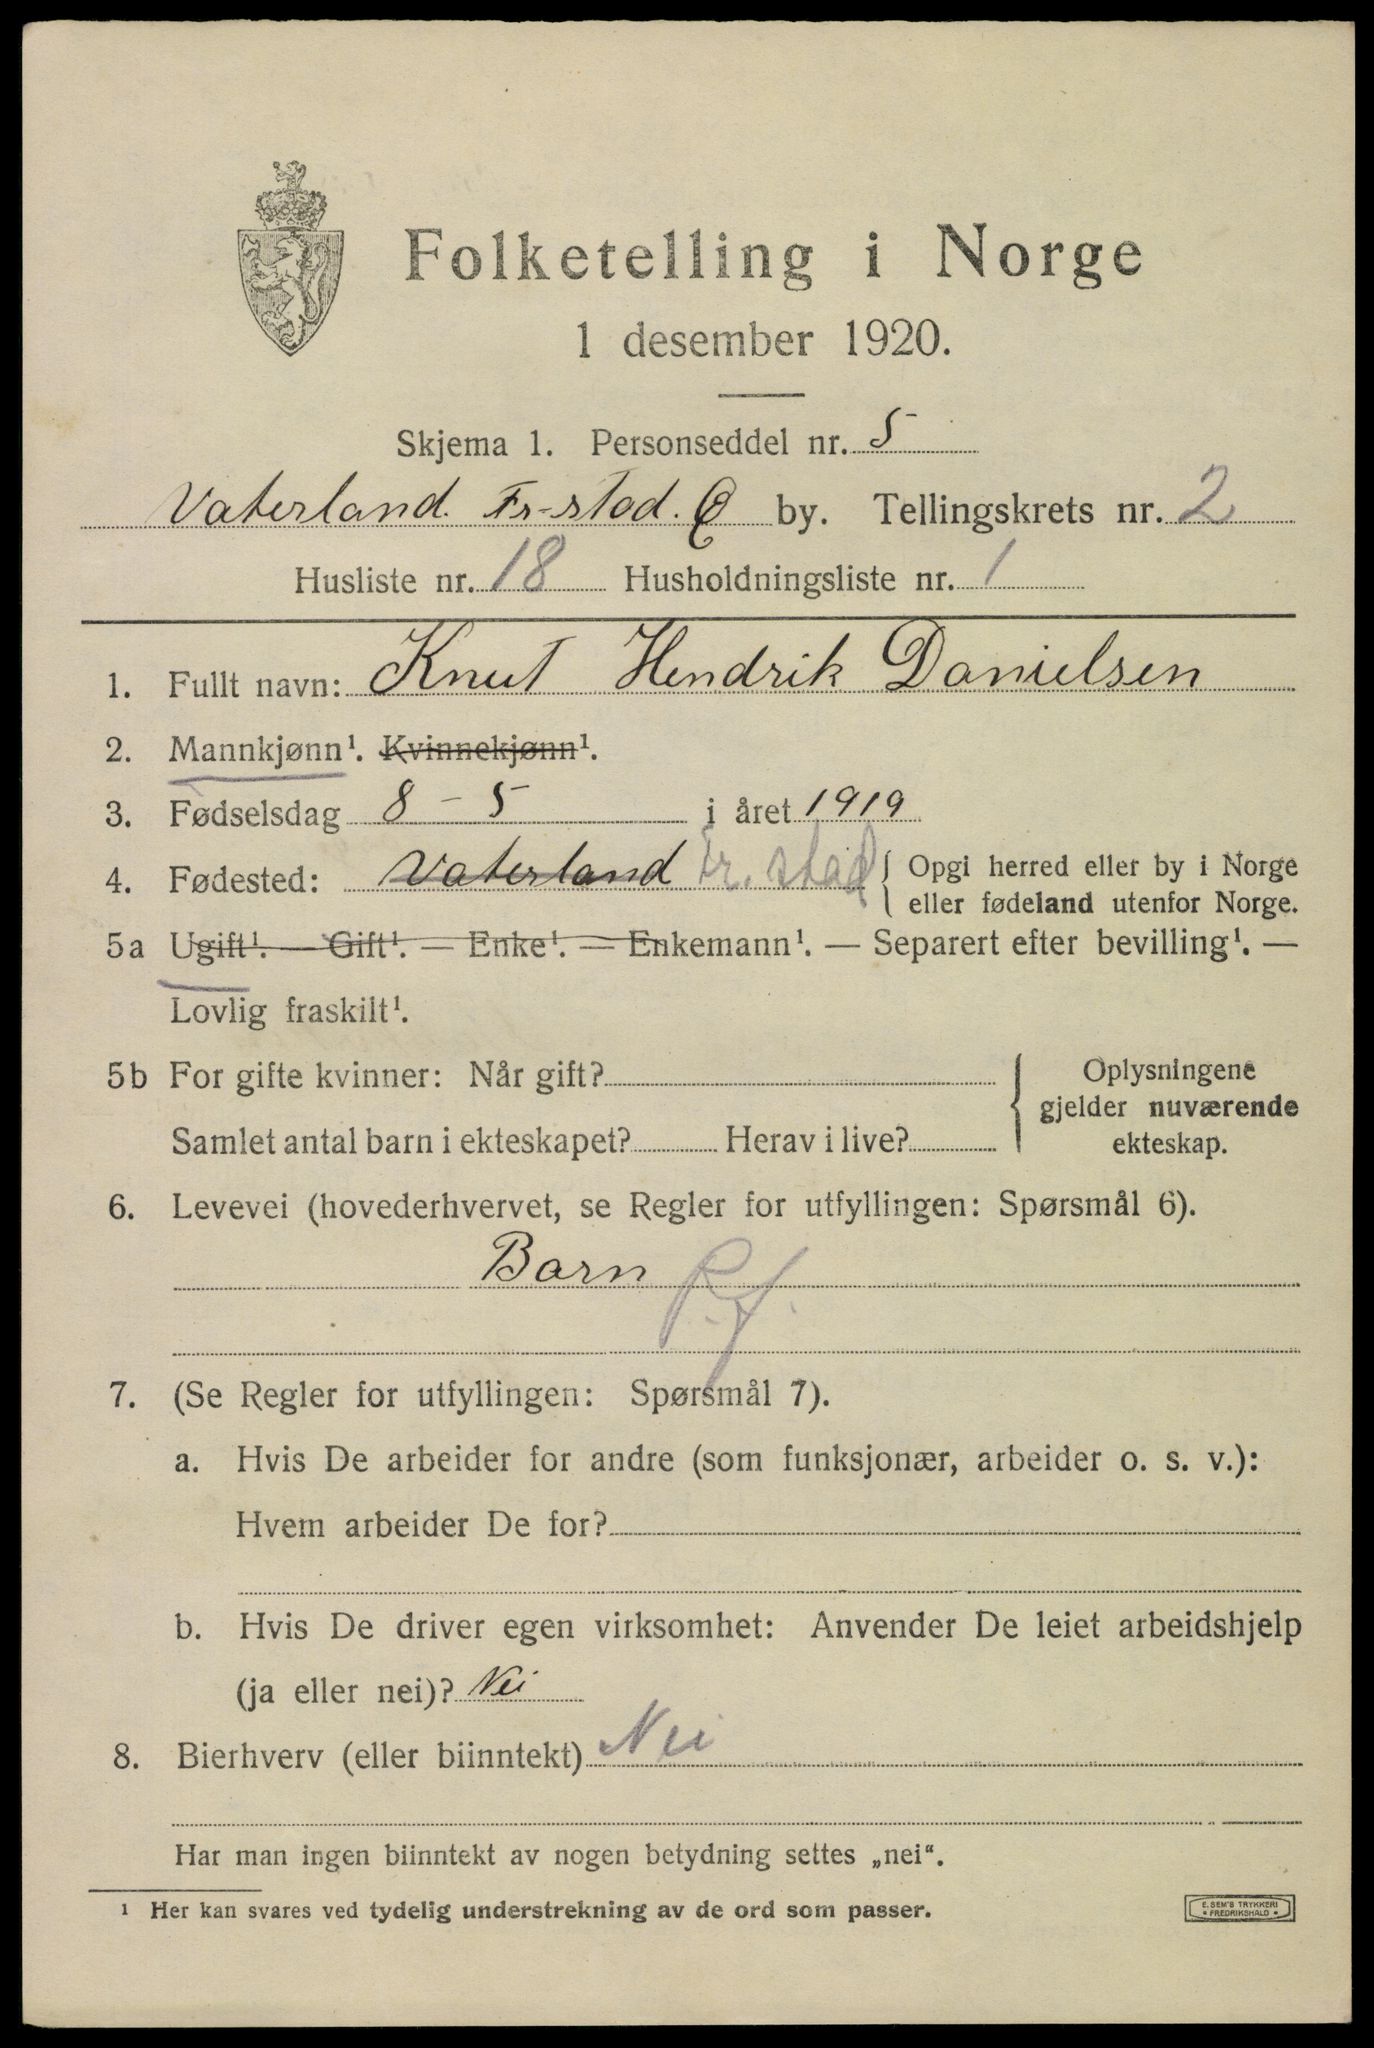 Folketelling i Norge
1 desember 1920.
Skjema 1. Personseddel nr. 5
Vaterland. Fr-stad. Ø by. Tellingskrets nr. 2
Husliste nr. 18 Husholdningsliste nr. 1
1. Fullt navn: Knut Hendrik Danielsen
2. Mannkjønn¹. Kvinnekjønn¹.
3. Fødselsdag 8 - 5 i året 1919
4. Fødested: Vaterland Fr. stad { Opgi herred eller by i Norge
eller fødeland utenfor Norge.
5a Ugift¹. — Gift¹. — Enke¹. — Enkemann¹. — Separert efter bevilling¹. —
Lovlig fraskilt¹.
5b For gifte kvinner: Når gift?
Samlet antal barn i ekteskapet? Herav i live?
{ Oplysningene
gjelder nuværende
ekteskap.
6. Levevei (hovederhvervet, se Regler for utfyllingen: Spørsmål 6).
Barn P.f.
7. (Se Regler for utfyllingen: Spørsmål 7).
a. Hvis De arbeider for andre (som funksjonær, arbeider o. s. v.):
Hvem arbeider De for?
b. Hvis De driver egen virksomhet: Anvender De leiet arbeidshjelp
(ja eller nei)? Nei
8. Bierhverv (eller biinntekt) Nei
Har man ingen biinntekt av nogen betydning settes „nei“.
¹ Her kan svares ved tydelig understrekning av de ord som passer.
E. SEM'S TRYKKERI
• FREDRIKSHALD •